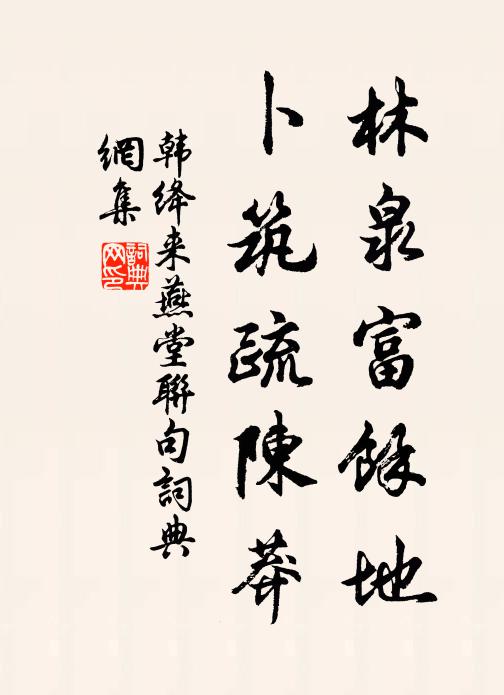 林泉富餘地
卜筑疏陳莽
韩绛来燕堂聯句詞典
網集
詞典
网印